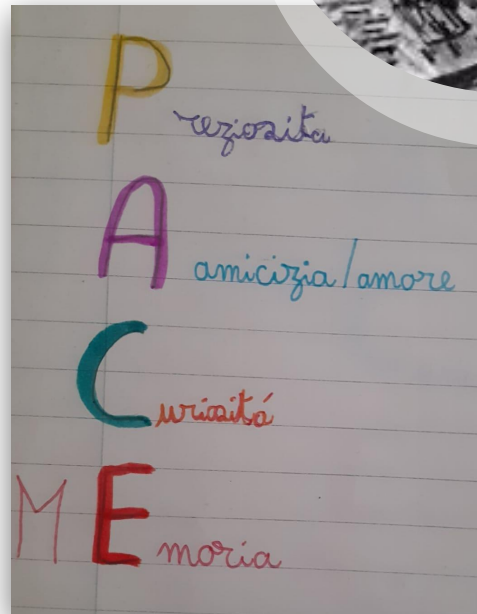 Preziosita
A amicizia/amore
Curiositá
MEmoria